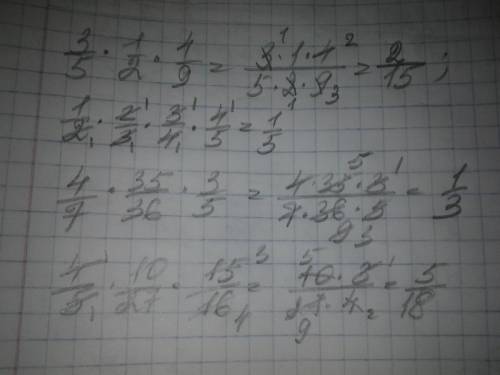 3/5 · 1/2 · 4/9 = 3·1·4/5·2·9 = 2/15 ;
1/2 · 2/3 · 3/4 · 4/5 = 1/5
4/7 · 35/36 · 3/5 = 4·35·3/7·36·5 = 1/3
4/5 · 10/27 · 15/16 = 10·3/27·4 = 5/18